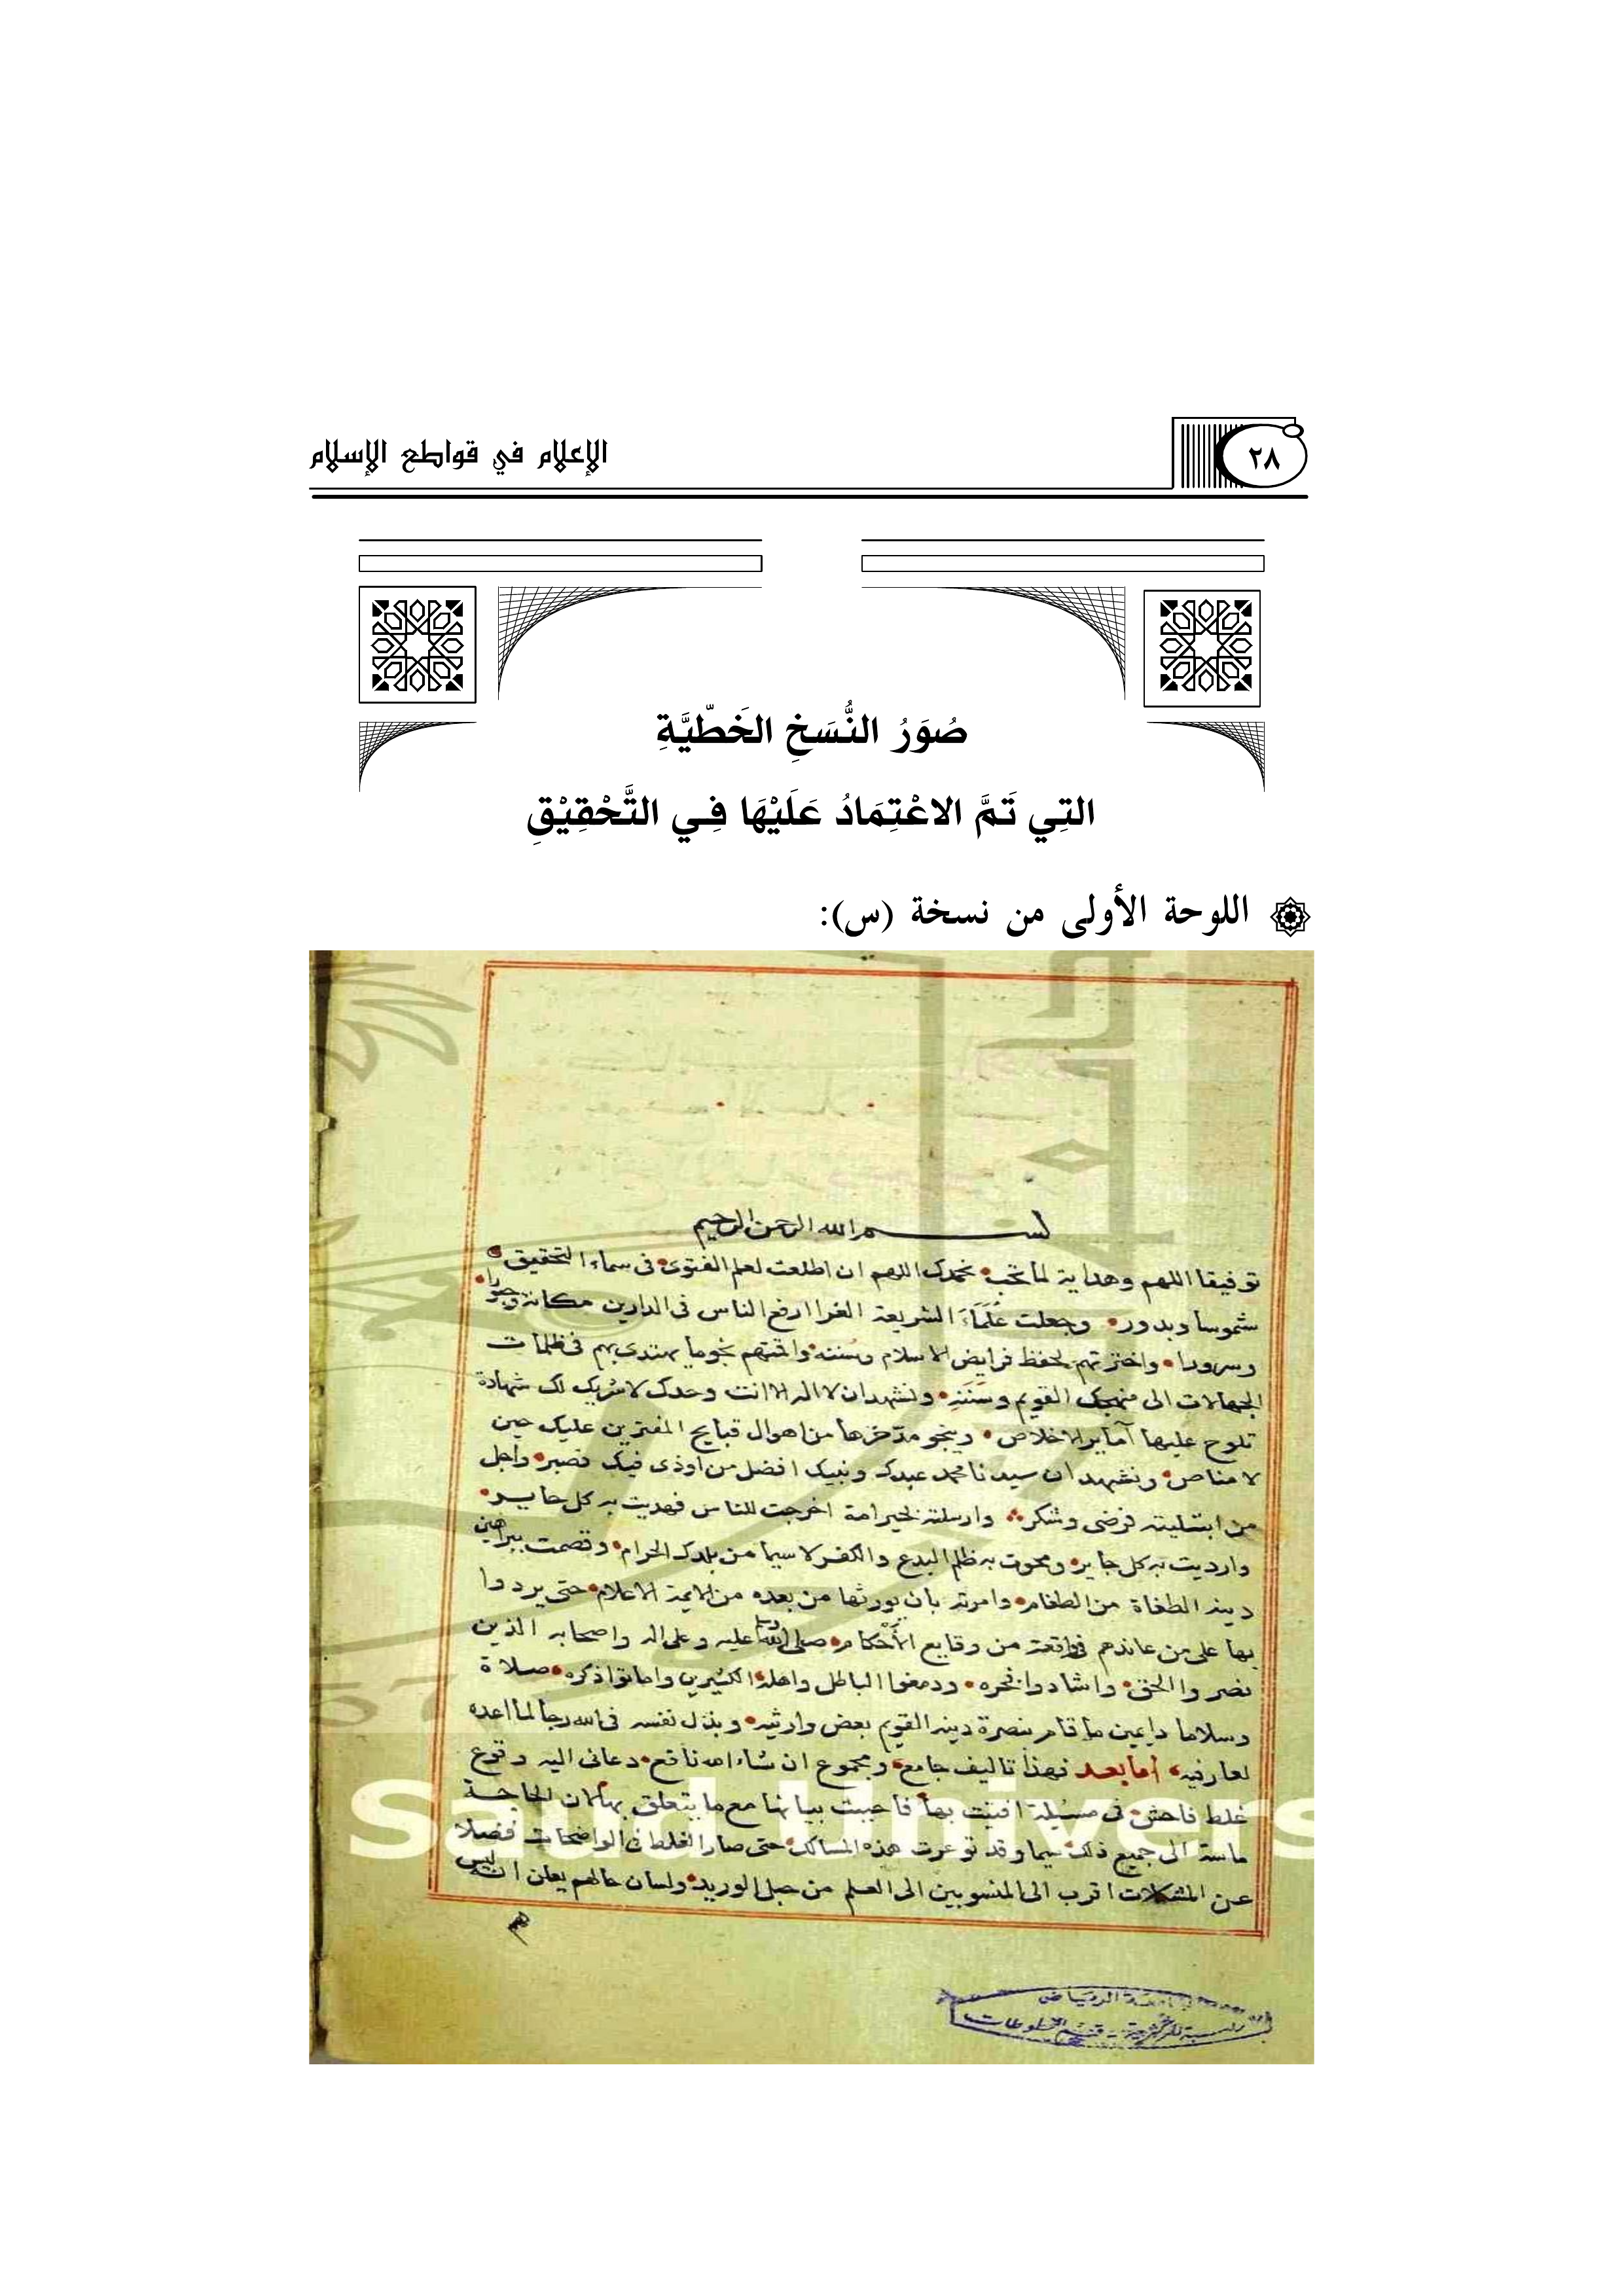 الإعلام في قواطع الإسلام
٢٨
صُوَرُ النُّسَخِ الخَطّيَّةِ
التِي تَمَّ الاعْتِمَادُ عَلَيْهَا فِي التَّحْقِيْقِ
اللوحة الأولى من نسخة (س):
بسم الله الرحمن الرحيم
توفيقا اللهم وهداية لما تحب نحمدك اللهم ان اطلعت لعلم الفتوى فى سماء التحقيق
شموسا وبدور وجعلت عُلَمَاءَ الشريعة الغرا ارفع الناس فى الدارين مكانة وحبورا
وسرورا واخترتهم لحفظ فرايض الاسلام وسننه واقمتهم نجوما يهتدى بهم فى ظلمات
الجهالات الى منهجك القويم وسَنَنِه ونشهد ان لا اله الا انت وحدك لا شريك لك شهادة
تلوح عليها آماير الاخلاص وينجو مدّخرها من اهوال قبايح المفترين عليك حين
لا مناص ونشهد ان سيدنا محمد عبدك ونبيك افضل من اوذى فيك فصبر واجل
من ابتليته فرضى وشكر وارسلته لخير امة اخرجت للناس فهديت به كل حاير
وارديت به كل جاير ومحوت به ظلم البدع والكفر لا سيما من بلدك الحرام وقصمت ببراهين
دينه الطغاة من الطغام وامرته بان يورثها من بعده من الايمة الاعلام حتى يردوا
بها على من عاندهم فى واقعة من وقايع الأحكام صلى الله وسلم عليه وعلى اله واصحابه الذين
نصروا الحق واشادوا فخره ودمغوا الباطل واهله الكثيرين واماتوا ذكره صلاة
وسلاما دايمين ما قام بنصرة دينه القويم بعض وارثيه وبذل نفسه فى الله رجا لما اعده
لعارفيه أما بعد فهذا تاليف جامع ومجموع ان شاء الله نافع دعانى اليه وقوع
غلط فاحش فى مسيلة افتيت بها فاحببت بيانها مع ما يتعلق بها لان الحاجة
ماسة الى جميع ذلك سيما وقد توعرت هذه المسالك حتى صار الغلط فى الواضحات فضلا
عن المشكلات اقرب الى المنسوبين الى العلم من حبل الوريد ولسان حالهم يعلن انه ليس
Saud Univers